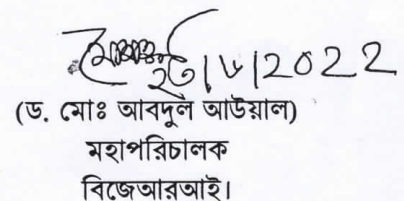 ২৩/৬/2022
(ড. মোঃ আবদুল আউয়াল)
মহাপরিচালক
বিজেআরআই।